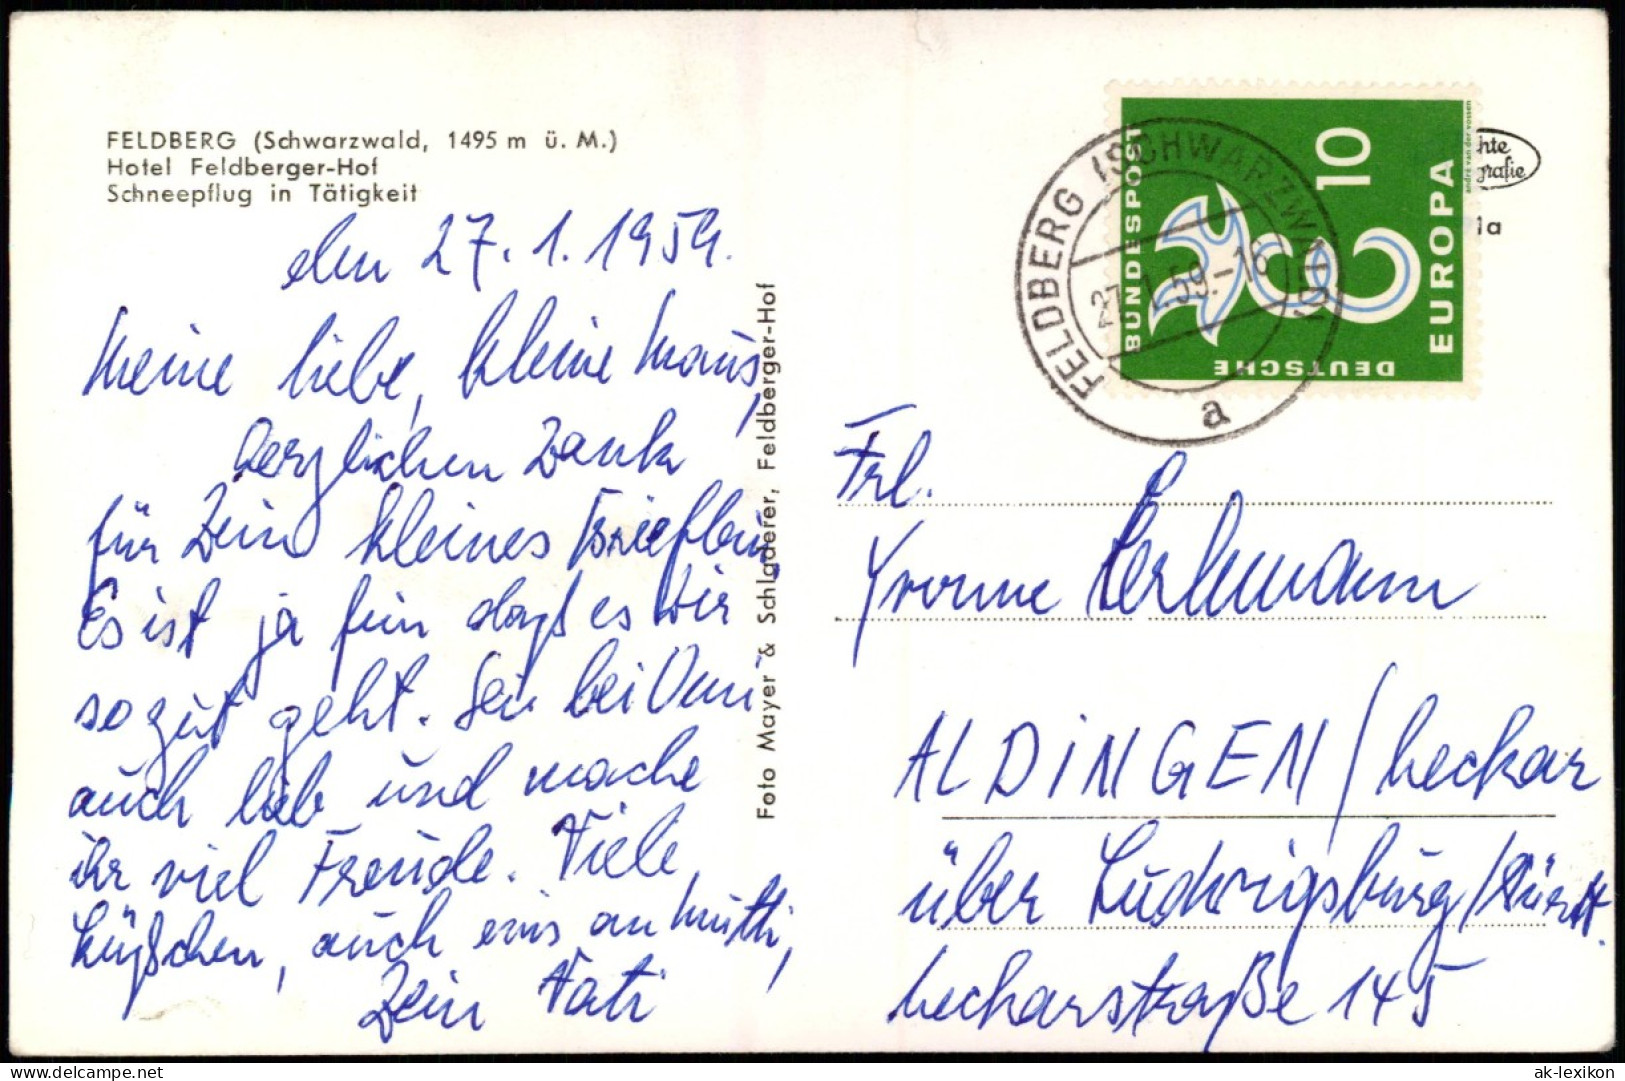 FELDBERG (Schwarzwald, 1495 m ü. M.)
Hotel Feldberger-Hof
Schneepflug in Tätigkeit
den 27.1.1959.
Meine liebe, kleine Maus,
herzlichen Dank
für Dein kleines Brieflein,
Es ist ja fein daß es Dir
so gut geht. Sei bei Omi
auch lieb und mache
ihr viel Freude. Viele
Küßchen, auch eins an Mutti,
Dein Vati
Foto Mayer & Schladerer, Feldberger-Hof
FELDBERG (SCHWARZWALD)
27.1.59.-16
a
DEUTSCHE
BUNDESPOST
10
EUROPA
andré van der vossen
hte
grafie
1a
Frl.
Yvonne
ALDINGEN / Neckar
über Ludwigsburg / Württ.
Neckarstraße 145
ak-lexikon